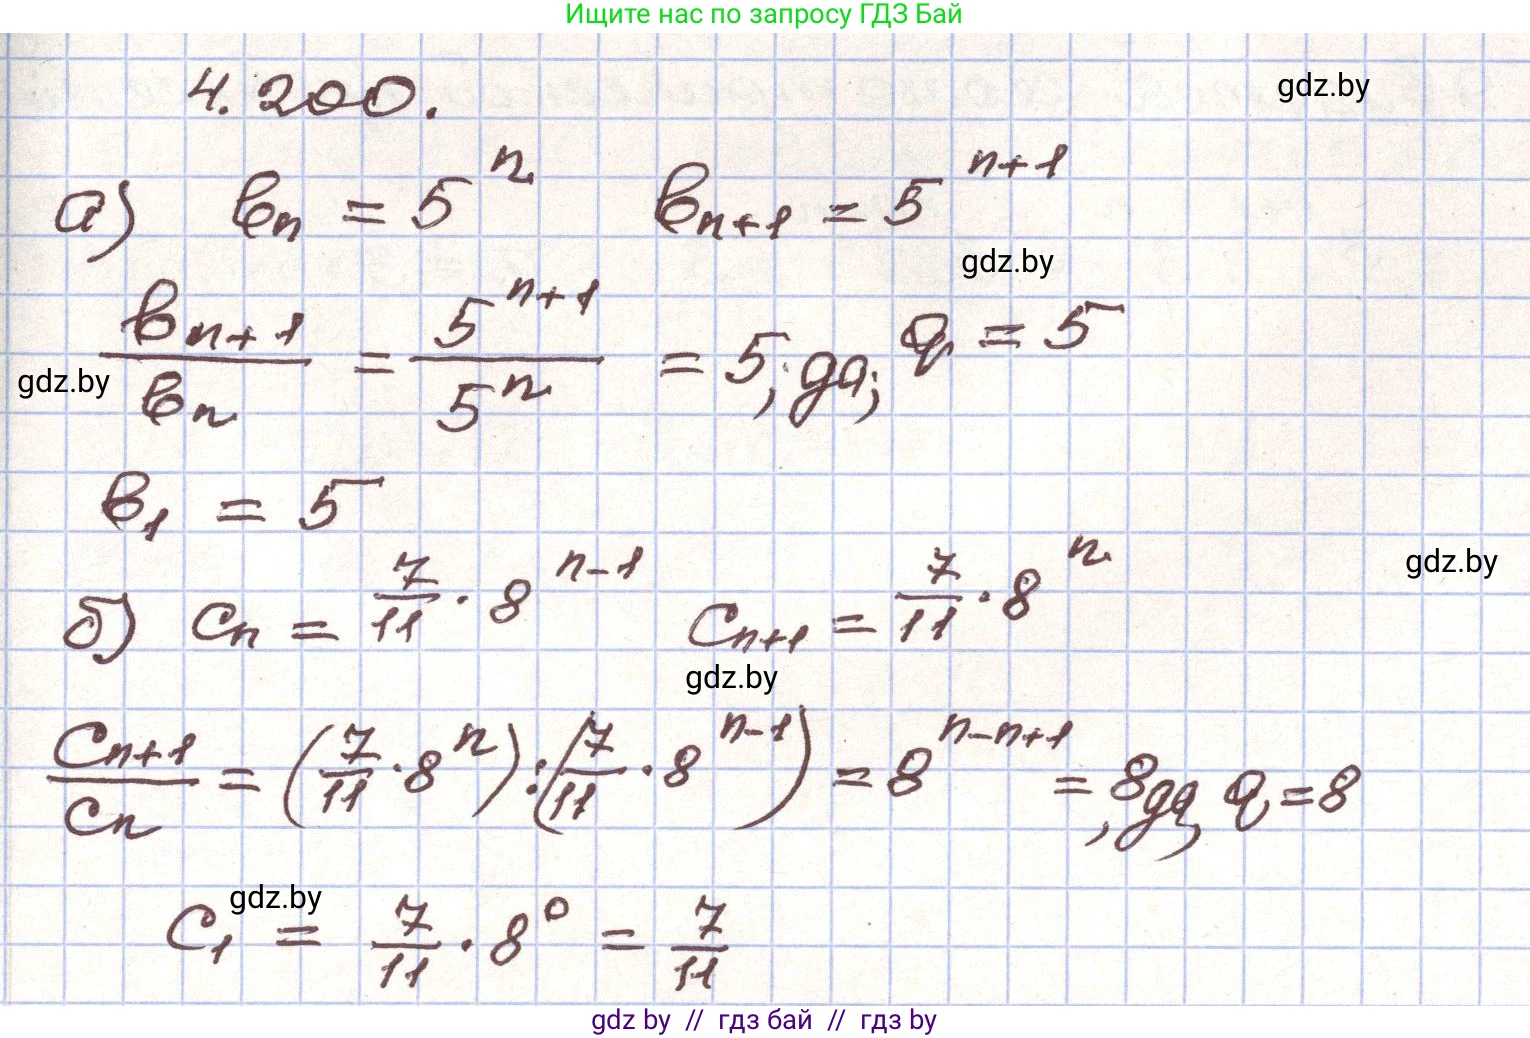 Ищите нас по запросу ГДЗ Бай
4.200.
gdz.by
а) bn = 5^n bn+1 = 5^n+1
gdz.by
bn+1/bn = 5^n+1/5^n = 5, да; q = 5
gdz.by
b1 = 5
gdz.by
б) cn = 7/11 · 8^n-1 cn+1 = 7/11 · 8^n
gdz.by
cn+1/cn = (7/11 · 8^n) : (7/11 · 8^n-1) = 8^n-n+1 = 8, да, q = 8
gdz.by
c1 = 7/11 · 8^0 = 7/11
gdz by // гдз бай // гдз by